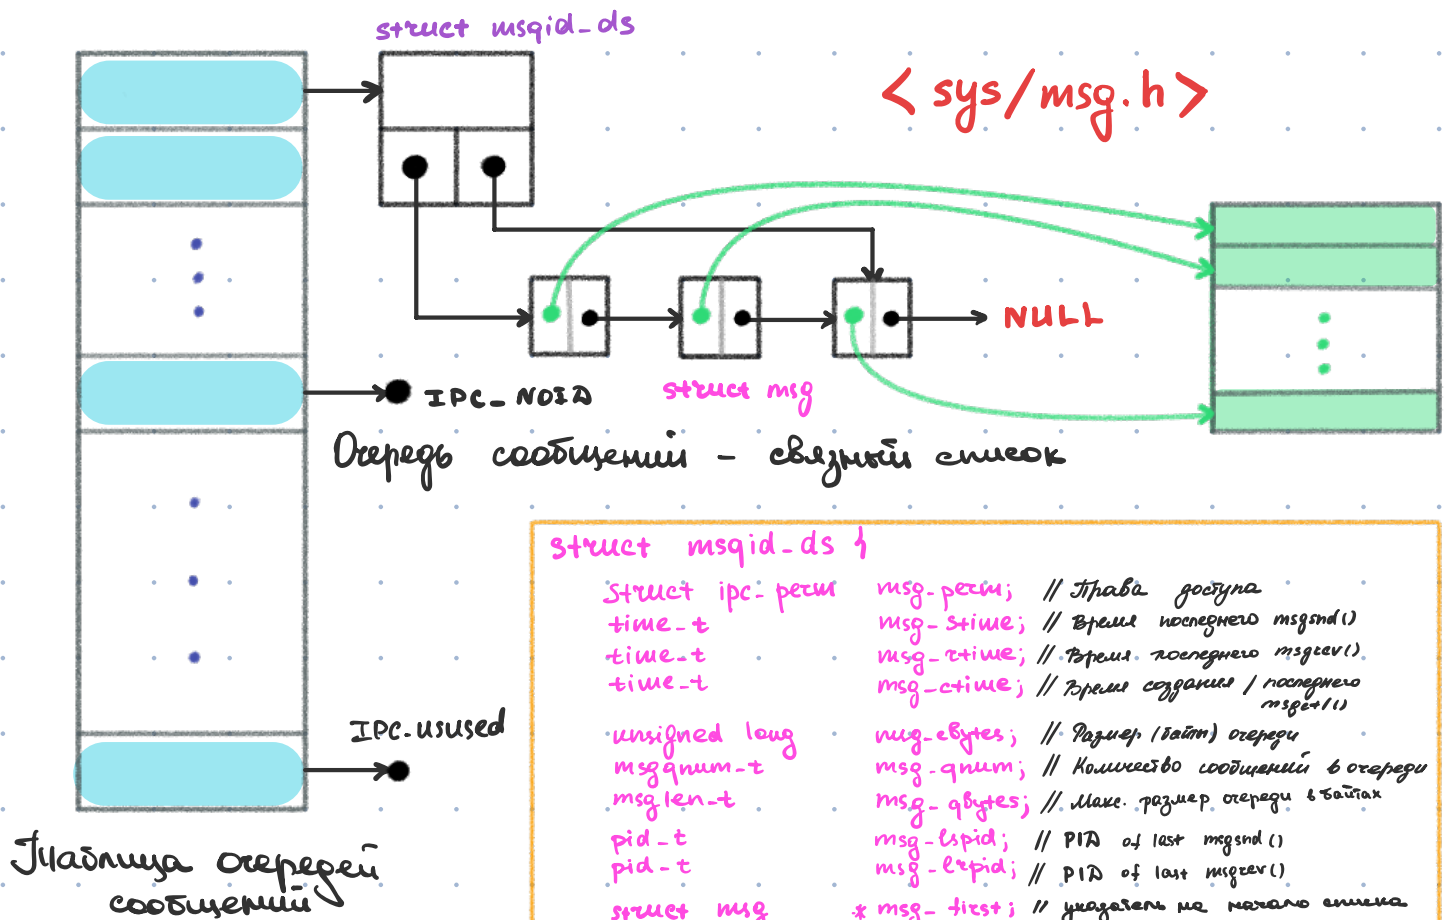 struct msqid_ds
< sys/msg.h >
NULL
IPC_NOID
struct msg
Очередь сообщений - связный список
IPC_USUSED
Таблица очередей
сообщений
struct msqid_ds {
struct ipc_perm msg_perm; // Права доступа
time_t msg_stime; // Время последнего msgsnd()
time_t msg_rtime; // Время последнего msgrcv()
time_t msg_ctime; // Время создания / последнего
msgctl()
unsigned long msg_cbytes; // Размер (байт) очереди
msgqnum_t msg_qnum; // Количество сообщений в очереди
msglen_t msg_qbytes; // Макс. размер очереди в байтах
pid_t msg_lspid; // PID of last msgsnd()
pid_t msg_lrpid; // PID of last msgrcv()
struct msg * msg_first; // указатель на начало списка